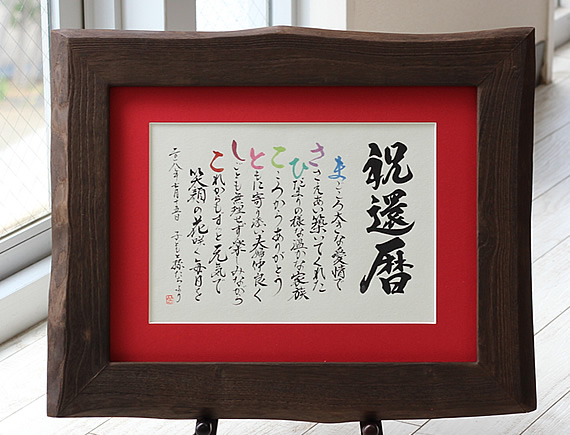 祝還暦
まごころ大きな愛情で
ささえあい築いてくれた
ひだまりの様な温かな家族
こころからありがとう
ともに寄り添い夫婦仲良く
しごとも無理せず楽しみながら
これからもずっと元気で
笑顔の花咲く毎日を
二〇一八年七月十五日 子ども孫たちより